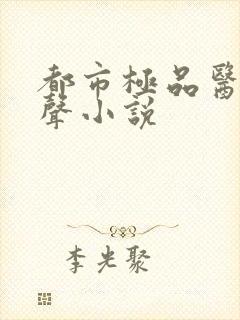 都市極品醫
聲小說
李光聚